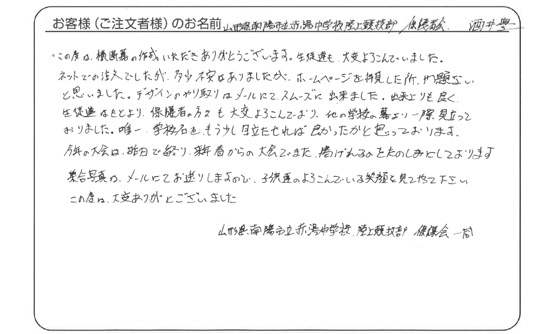 お客様（ご注文者様）のお名前 山形県南陽市立赤湯中学校陸上競技部 保護者会 酒井
この度は、横断幕の作成いただきありがとうございます。生徒達も、大変よろこんでいました。
ネットでの注文でしたが、多少不安はありましたが、ホームページを拝見した所、問題ない
と思いました。デザインのやり取りはメールにて、スムーズに出来ました。出来よりも良く、
生徒達はもとより、保護者の方々も大変よろこんでおり、他の学校の幕より一際目立って
おりました。唯一、学校名をもう少し目立たせれば良かったかと思っております。
今年の大会は、昨日で終り、来年春からの大会でまた、掲げれるのをたのしみとしております
集合写真は、メールにてお送りしますので、子供達のよろこんでいる笑顔を見てやって下さい
この度は、大変ありがとございました
山形県南陽市立赤湯中学校 陸上競技部 保護者会一同